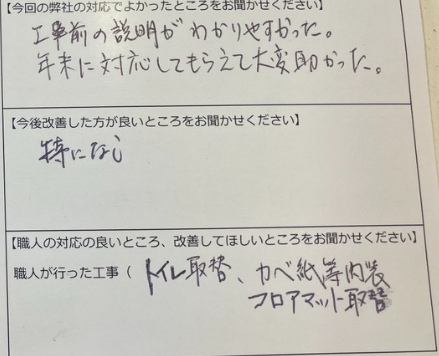 【今回の弊社の対応でよかったところをお聞かせください】
工事前の説明がわかりやすかった。
年末に対応してもらえて大変助かった。
【今後改善した方が良いところをお聞かせください】
特になし
【職人の対応の良いところ、改善してほしいところをお聞かせください】
職人が行った工事（ トイレ取替、カベ紙等内装
フロアマット取替